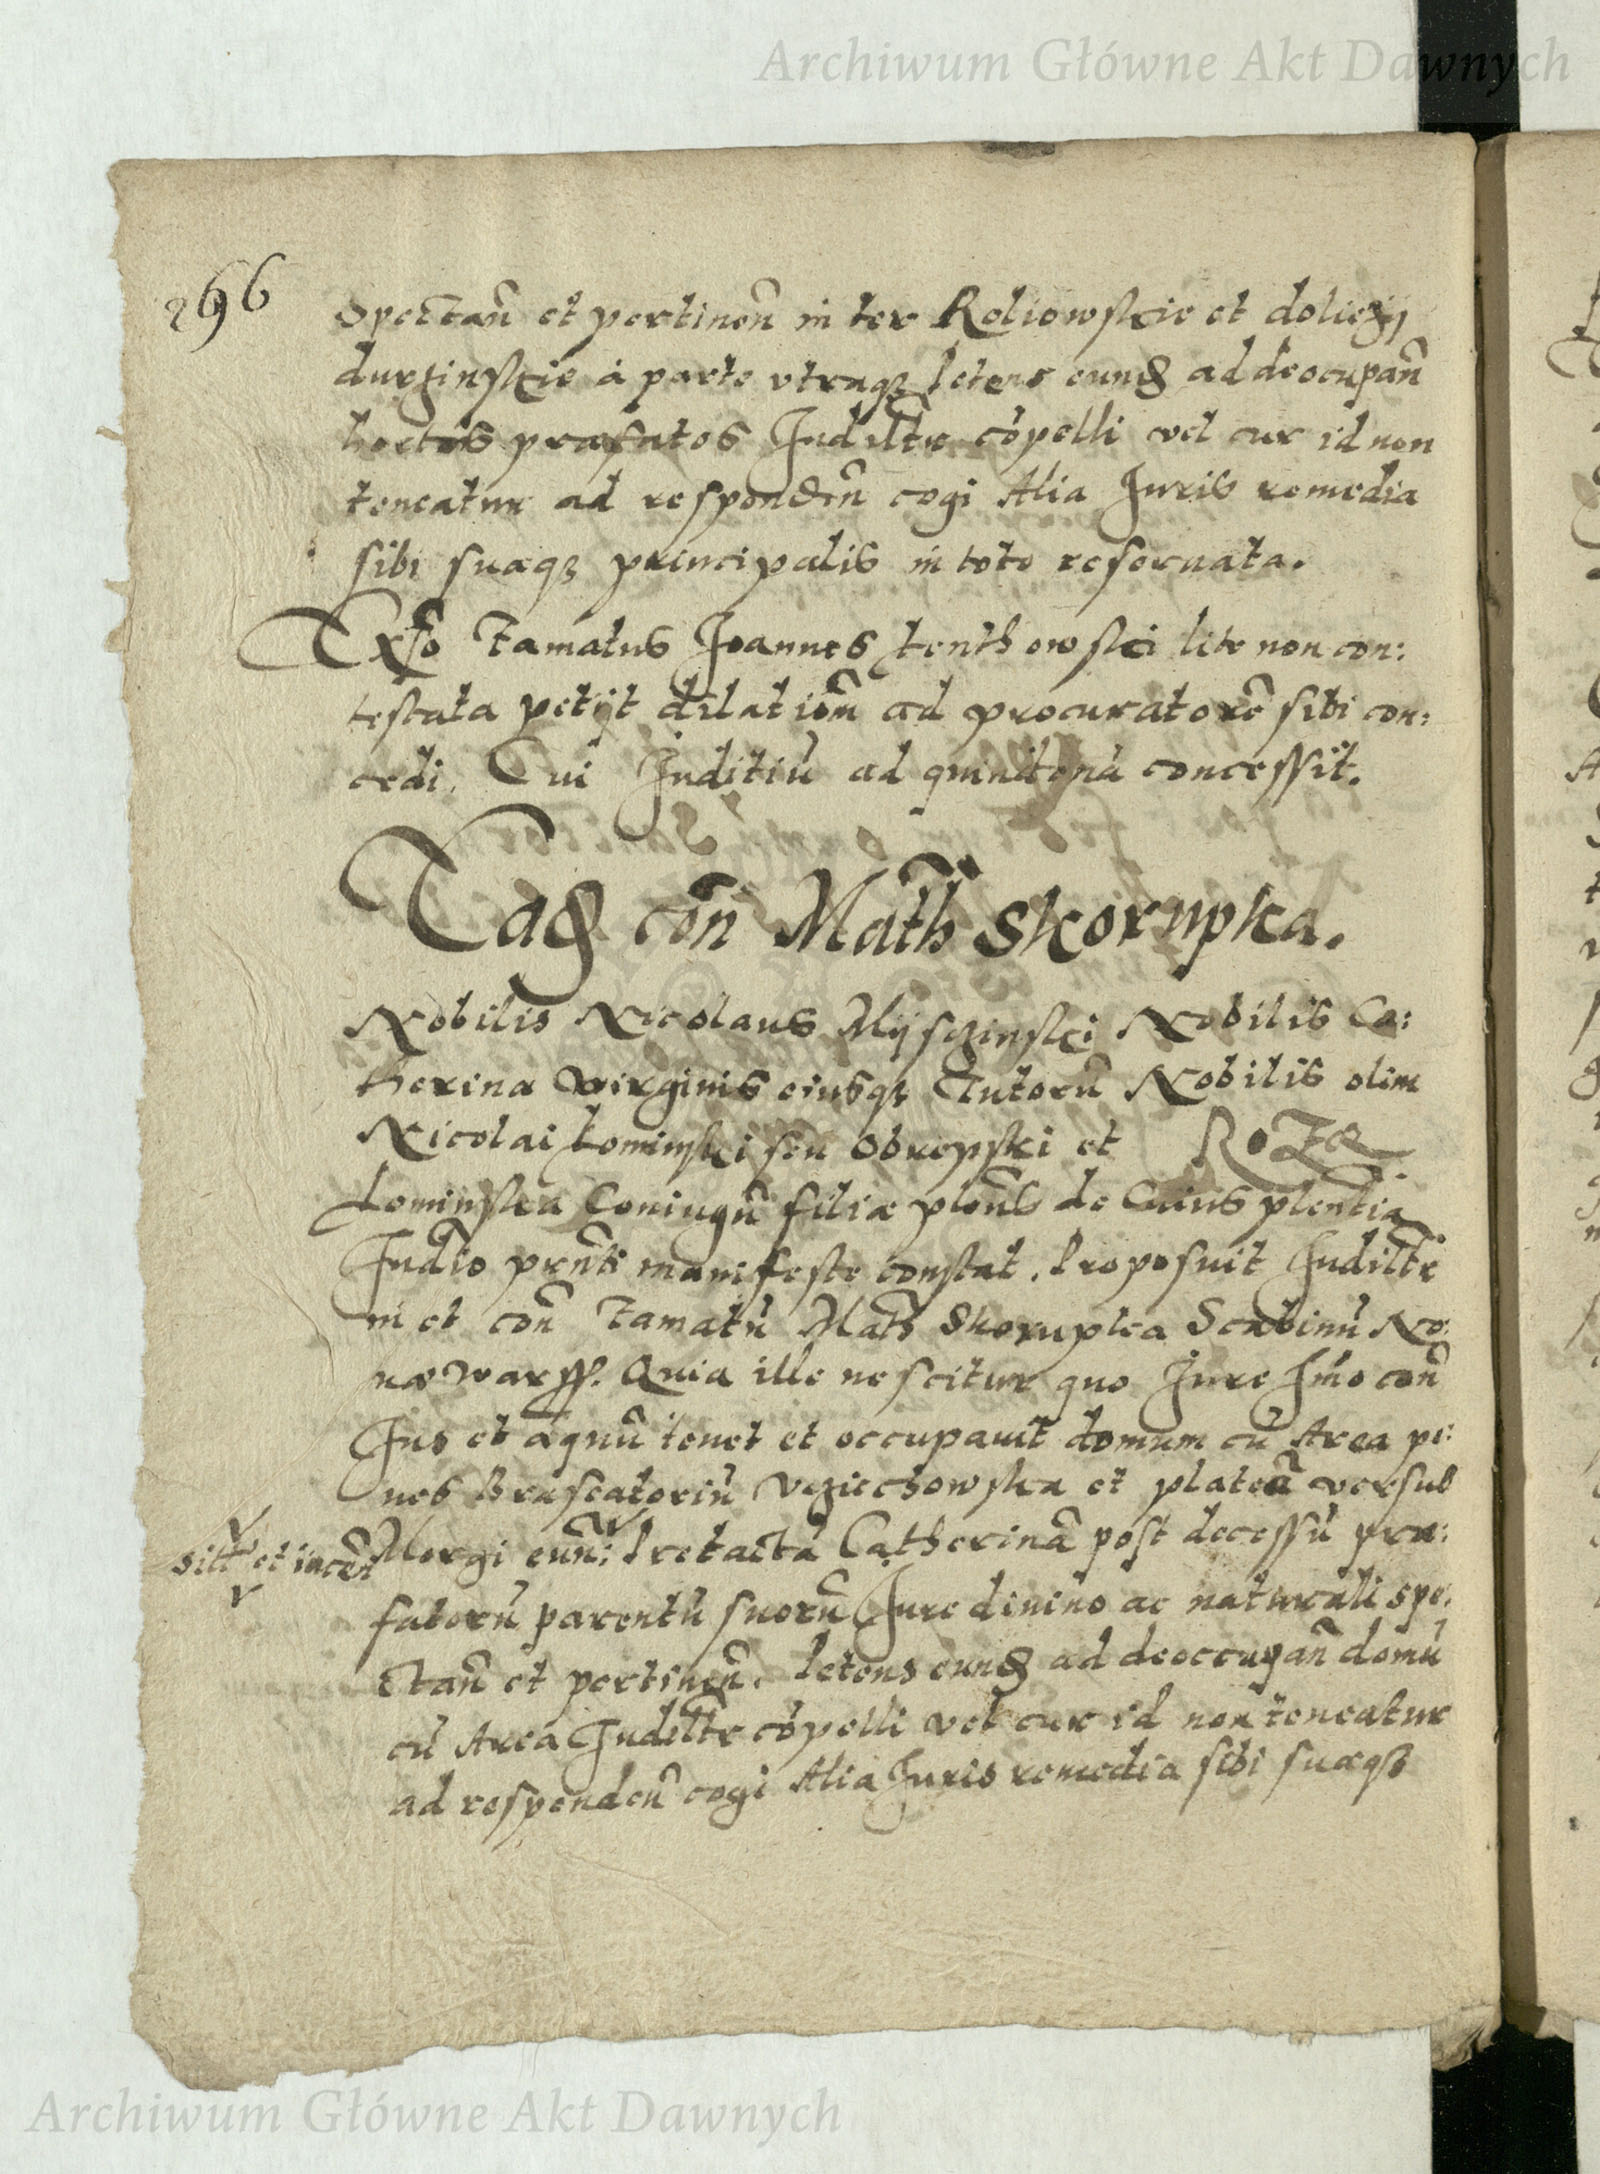 Archiwum Główne Akt Dawnych
296
Spectañ et pertineñ in ter Roliowskie et
durzinskie à parte vtraqꝫ Petens eundꝫ ad deocupañ
hortos præfatos Juditr̃e cõpelli vel cur id non
teneatur ad respondeñ cogi Alia Juris remedia
sibi suæqꝫ principalis in toto reseruata.
Ex ſo Famatus Joannes lite non con:
testata petijt dilatiom̃ ad procuratorẽ sibi con:
cedi. Cui Juditiũ ad quindenã concessit.
coñ Math̃ Skorupka.
Nobilis Nicolaus Mijsczinski Nobilis Ca:
therina virginis eiusqꝫ Tutorũ Nobilis olim
Nicolai Lominski seu Obrepski et Roza
Lominska Coniugũ filiæ de Cuius plentia
Judio pr̃nti manifeste constat. Proposuit Juditr̃e
in et coñ Famatũ Math̃ Skorupka Scabinũ No:
uæ Warſſ. Quia ille nescitur quo Jure Jm̃o coñ
Jus et æquũ tenet et occupauit domum cũ Area pe:
nes Braseatoriũ et plateã versus
sitt̃ et iacẽñ
Morgi euñ: Pretactã Catherinã post decessũ præ:
fatorũ parentũ suorũ Jure diuino ac naturali spe:
ctañ et pertineñ. Petens eundꝫ ad deoccupañ domũ
cũ Area Juditr̃e cõpelli vel cur id non teneatur
ad respondeñ cogi Alia Juris remedia sibi suæqꝫ
Archiwum Główne Akt Dawnych